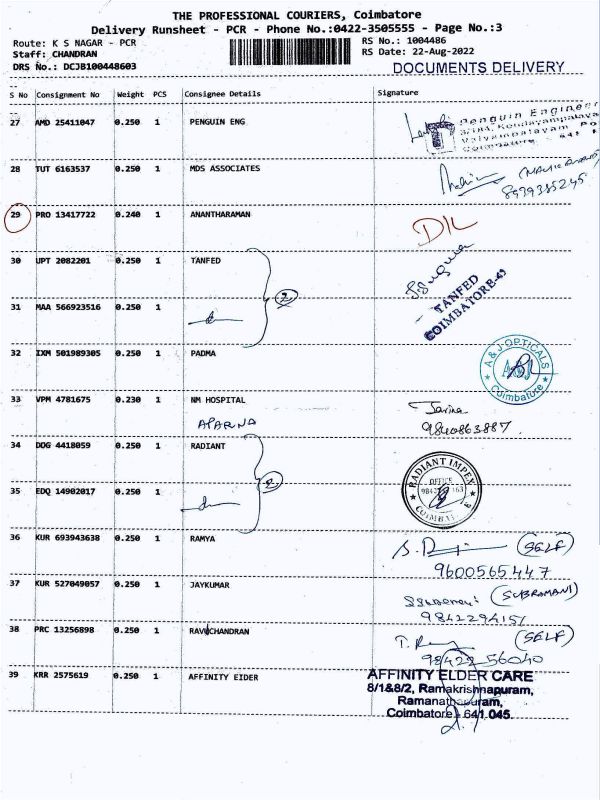 THE PROFESSIONAL COURIERS, Coimbatore
Delivery Runsheet - PCR - Phone No.:0422-3505555 - Page No.:3
Route: K S NAGAR - PCR RS No.: 1004486
Staff: CHANDRAN RS Date: 22-Aug-2022
DRS No.: DCJB100448603 DOCUMENTS DELIVERY
S No Consignment No Weight PCS Consignee Details Signature
27 AMD 25411047 0.250 1 PENGUIN ENG
Penguin Engineer
Coimbatore
28 TUT 6163537 0.250 1 MDS ASSOCIATES
8939385245
29 PRO 13417722 0.240 1 ANANTHARAMAN
30 UPT 2082201 0.250 1 TANFED
2
TANFED
COIMBATORE-43
31 MAA 566923516 0.250 1
32 IXM 501989305 0.250 1 PADMA
A & J OPTICALS
Coimbatore
33 VPM 4781675 0.230 1 NM HOSPITAL
APARNA
9840863887
34 DOG 4418059 0.250 1 RADIANT
2
RADIANT IMPEX
OFFICE
35 EDQ 14902017 0.250 1
36 KUR 693943638 0.250 1 RAMYA (SELF)
9600565447
37 KUR 527049057 0.250 1 JAYKUMAR (SUBRAMANI)
9842294151
38 PRC 13256898 0.250 1 RAVICHANDRAN (SELF)
98422 56040
39 KRR 2575619 0.250 1 AFFINITY EIDER
AFFINITY ELDER CARE
8/1&8/2, Ramakrishnapuram,
Ramanathapuram,
Coimbatore - 641 045.